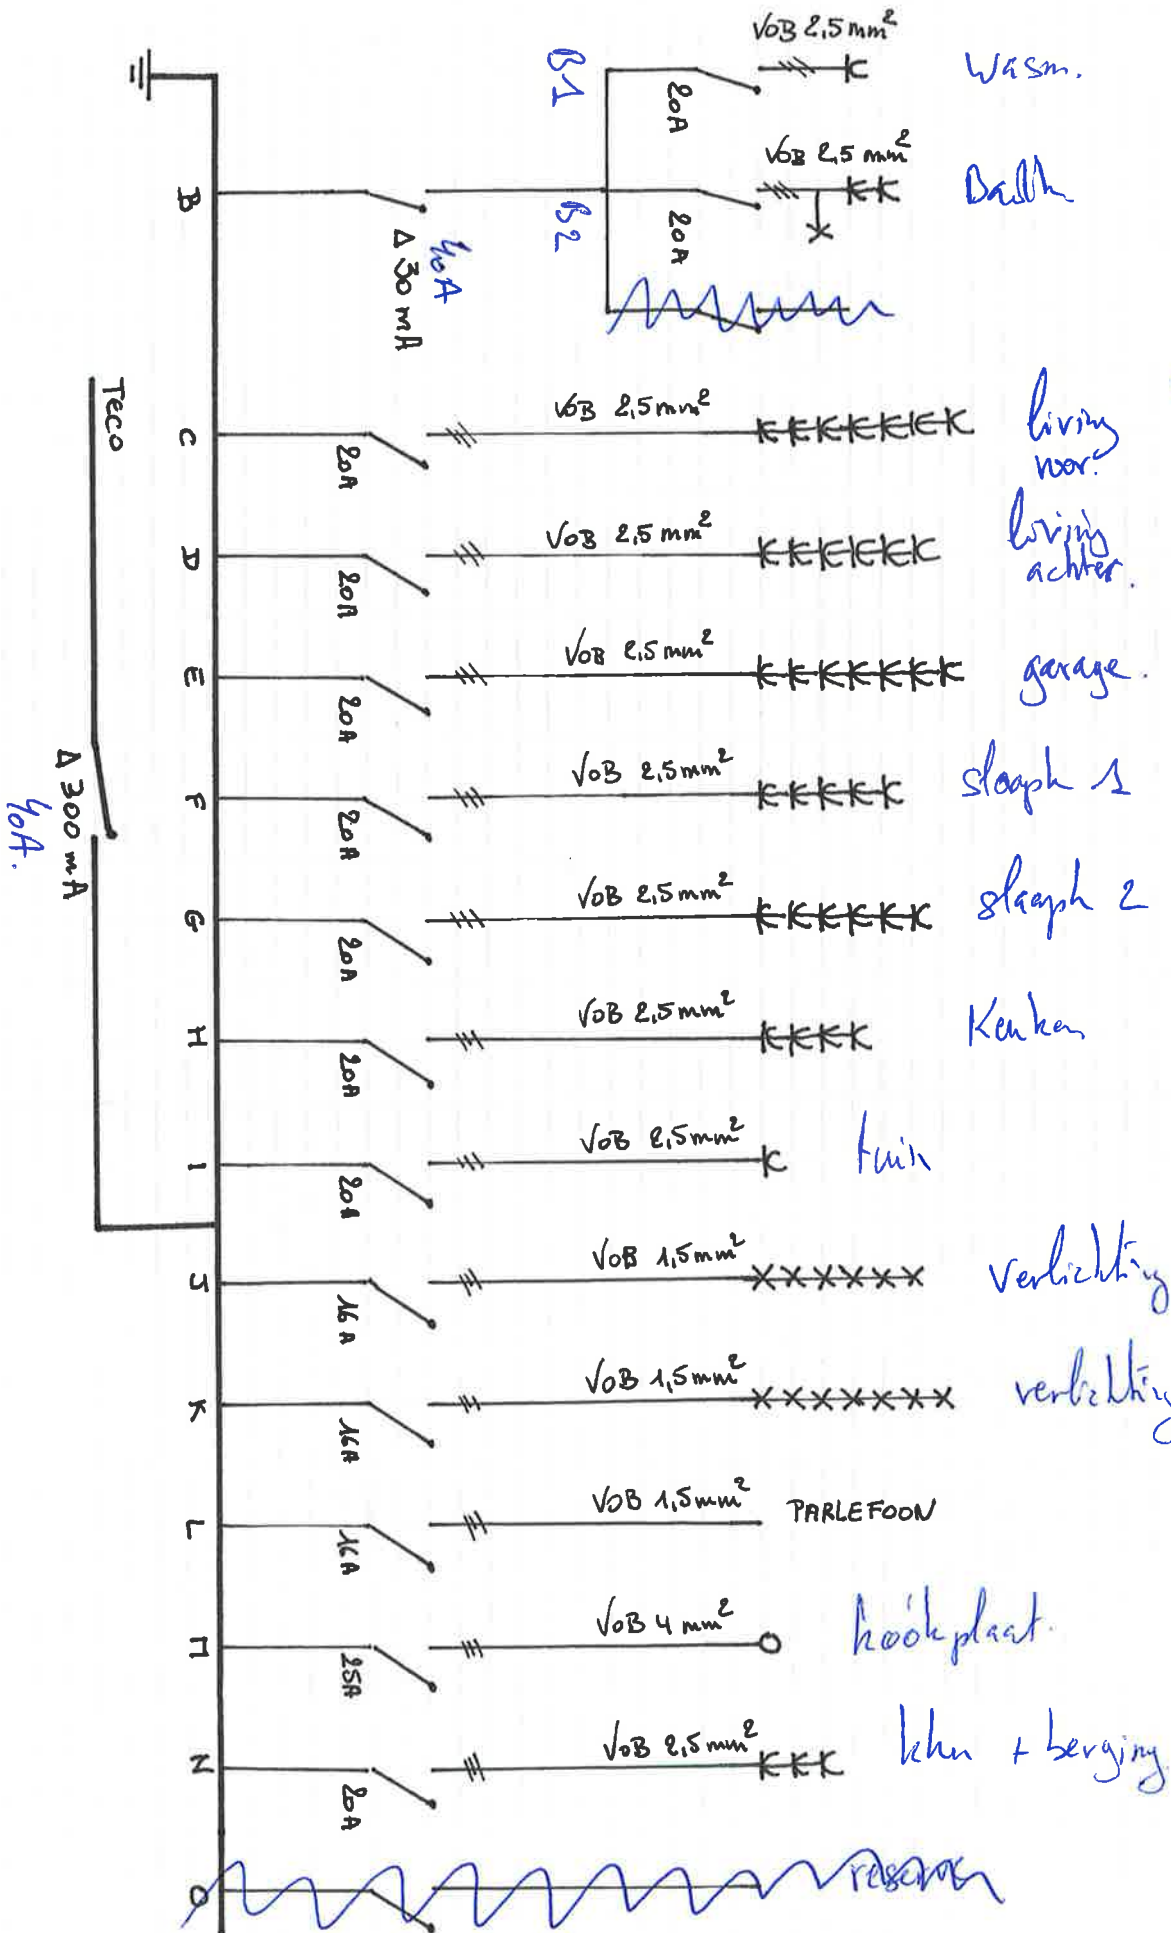 VOB 2,5 mm²
Wasm.
B1
20A
VOB 2,5 mm²
B
B2
20A
40A
Δ 30 mA
Teco
Δ 300 mA
40A.
C
20A
VOB 2,5 mm²
living
voor.
D
20A
VOB 2,5 mm²
living
achter.
E
20A
VOB 2,5 mm²
garage.
F
20A
VOB 2,5 mm²
slaapk 1
G
20A
VOB 2,5 mm²
slaapk 2
H
20A
VOB 2,5 mm²
Keuken
I
20A
VOB 2,5 mm²
tuin
J
16A
VOB 1,5 mm²
Verlichting
K
16A
VOB 1,5 mm²
verlichting
L
16A
VOB 1,5 mm²
PARLEFOON
M
25A
VOB 4 mm²
kookplaat.
N
20A
VOB 2,5 mm²
+ berging
O
reserve